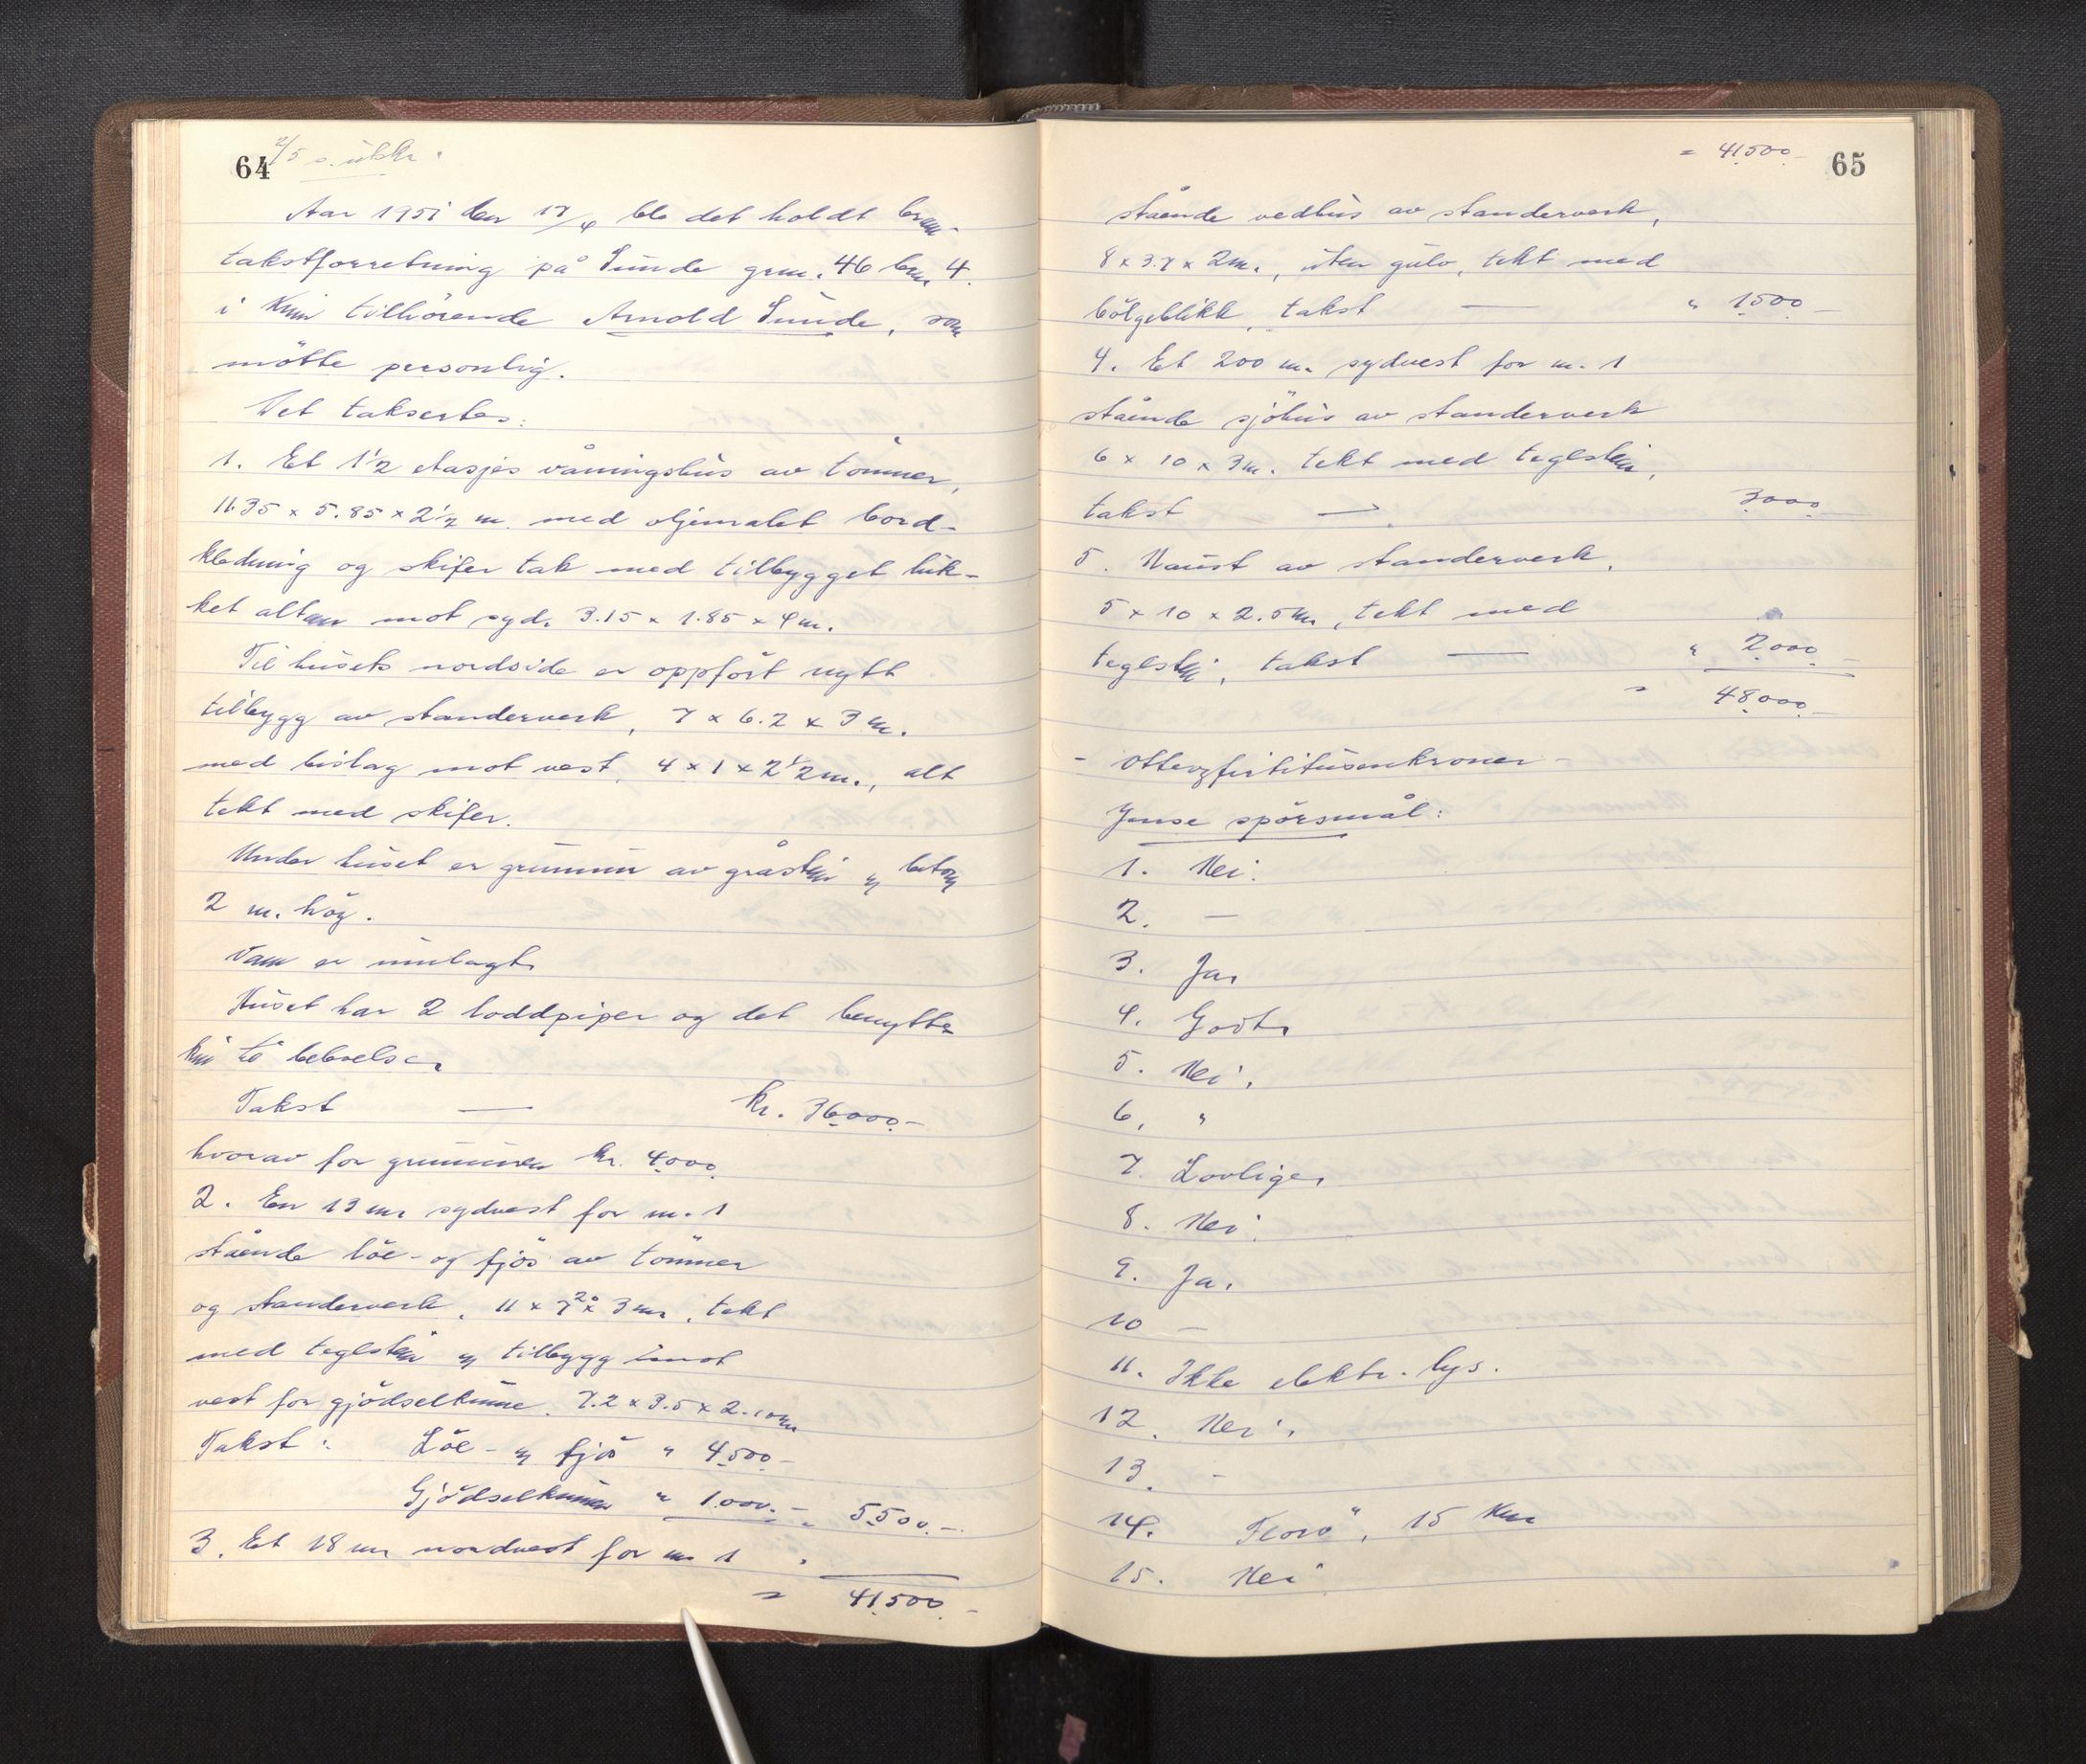 64 2/5 s. utskr.
Aar 1951 den 17/4 ble det holdt bran-
takstforretning på Sunde grn. 46 brn. 4.
i Kinn tilhörende Arnold Sunde, som
mötte personlig.
Det taksertes:
1. Et 1 1/2 etasjes våningshus av tömmer,
11.35 x 5.85 x 2 1/2 m. med oljemalet bord-
kledning og skifer tak med tilbygget luk-
ket altan mot syd. 3.15 x 1.85 x 4 m.
Til husets nordside er oppfört nytt
tilbygg av standerverk, 7 x 6.2 x 3 m.
med bislag mot vest, 4 x 1 x 2 1/2 m., alt
tekt med skifer.
Under huset er grunmur av gråstein og betong
2 m. hög.
Vann er innlagt.
Huset har 2 loddpiper og det benyttes
kun to beboelse.
Takst — kr. 36.000.-
hvorav for grunmuren kr. 4.000
2. En 13 m. sydvest for nr. 1
stående löe- og fjös av tömmer
og standerverk, 11 x 7.20 x 3 m., tekt
med teglstein og tilbygg imot
vest for gjödselkume. 7.2 x 3.5 x 2.10 m
Takst: Löe- og fjös " 4.500.-
Gjödselkummen " 1.000.- = 5.500.-
3. Et 18 m. nordvest for nr. 1
= 41.500.-
= 41.500.- 65
stående vedhus av standerverk,
8 x 3.7 x 2 m., uten gulv, tekt med
bölgeblikk, takst — " 1.500.-
4. Et 200 m. sydvest for nr. 1
stående sjöhus av standerverk
6 x 10 x 3 m. tekt med teglstein,
takst — 3.000.
5. Naust av standerverk,
5 x 10 x 2.5 m, tekt med
teglstein, takst — " 2.000.-
= 48.000.-
- Otteogförtitusenkroner -
Jnnse spörsmål:
1. Nei.
2. —
3. Ja.
4. Godt.
5. Nei.
6. "
7. Lovlige.
8. Nei.
9. Ja.
10 —
11. Ikke elektr. lys.
12. Nei.
13. -
14. Florö, 15 km
15. Nei